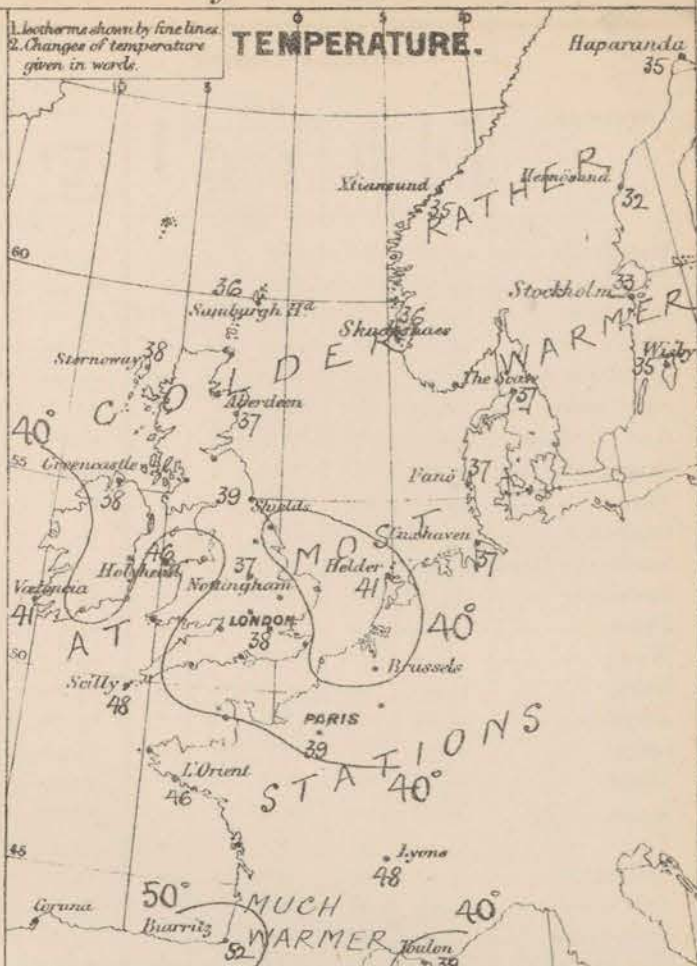 1. Isotherms shown by fine lines.
2. Changes of temperature
given in words.
TEMPERATURE.
0
10
10
5
Haparanda
35
Xtiansund
35
RATHER
Hernösand
32
60
36
Sumburgh Hd
Stockholm
33
Skudesnaes
36
WARMER
Wisby
35
Stornoway
38
COLDER
The Scaw
37
Aberdeen
37
40°
55
Greencastle
38
39
Shields
Fanö
37
MOST
Cuxhaven
37
46
Holyhead
37
Nottingham
Helder
41
Valencia
41
AT
LONDON
38
40°
50
Brussels
Scilly
48
PARIS
39
STATIONS
L'Orient
46
40°
45
Lyons
48
50°
MUCH
40°
Coruna
Biarritz
WARMER
Toulon
52
39